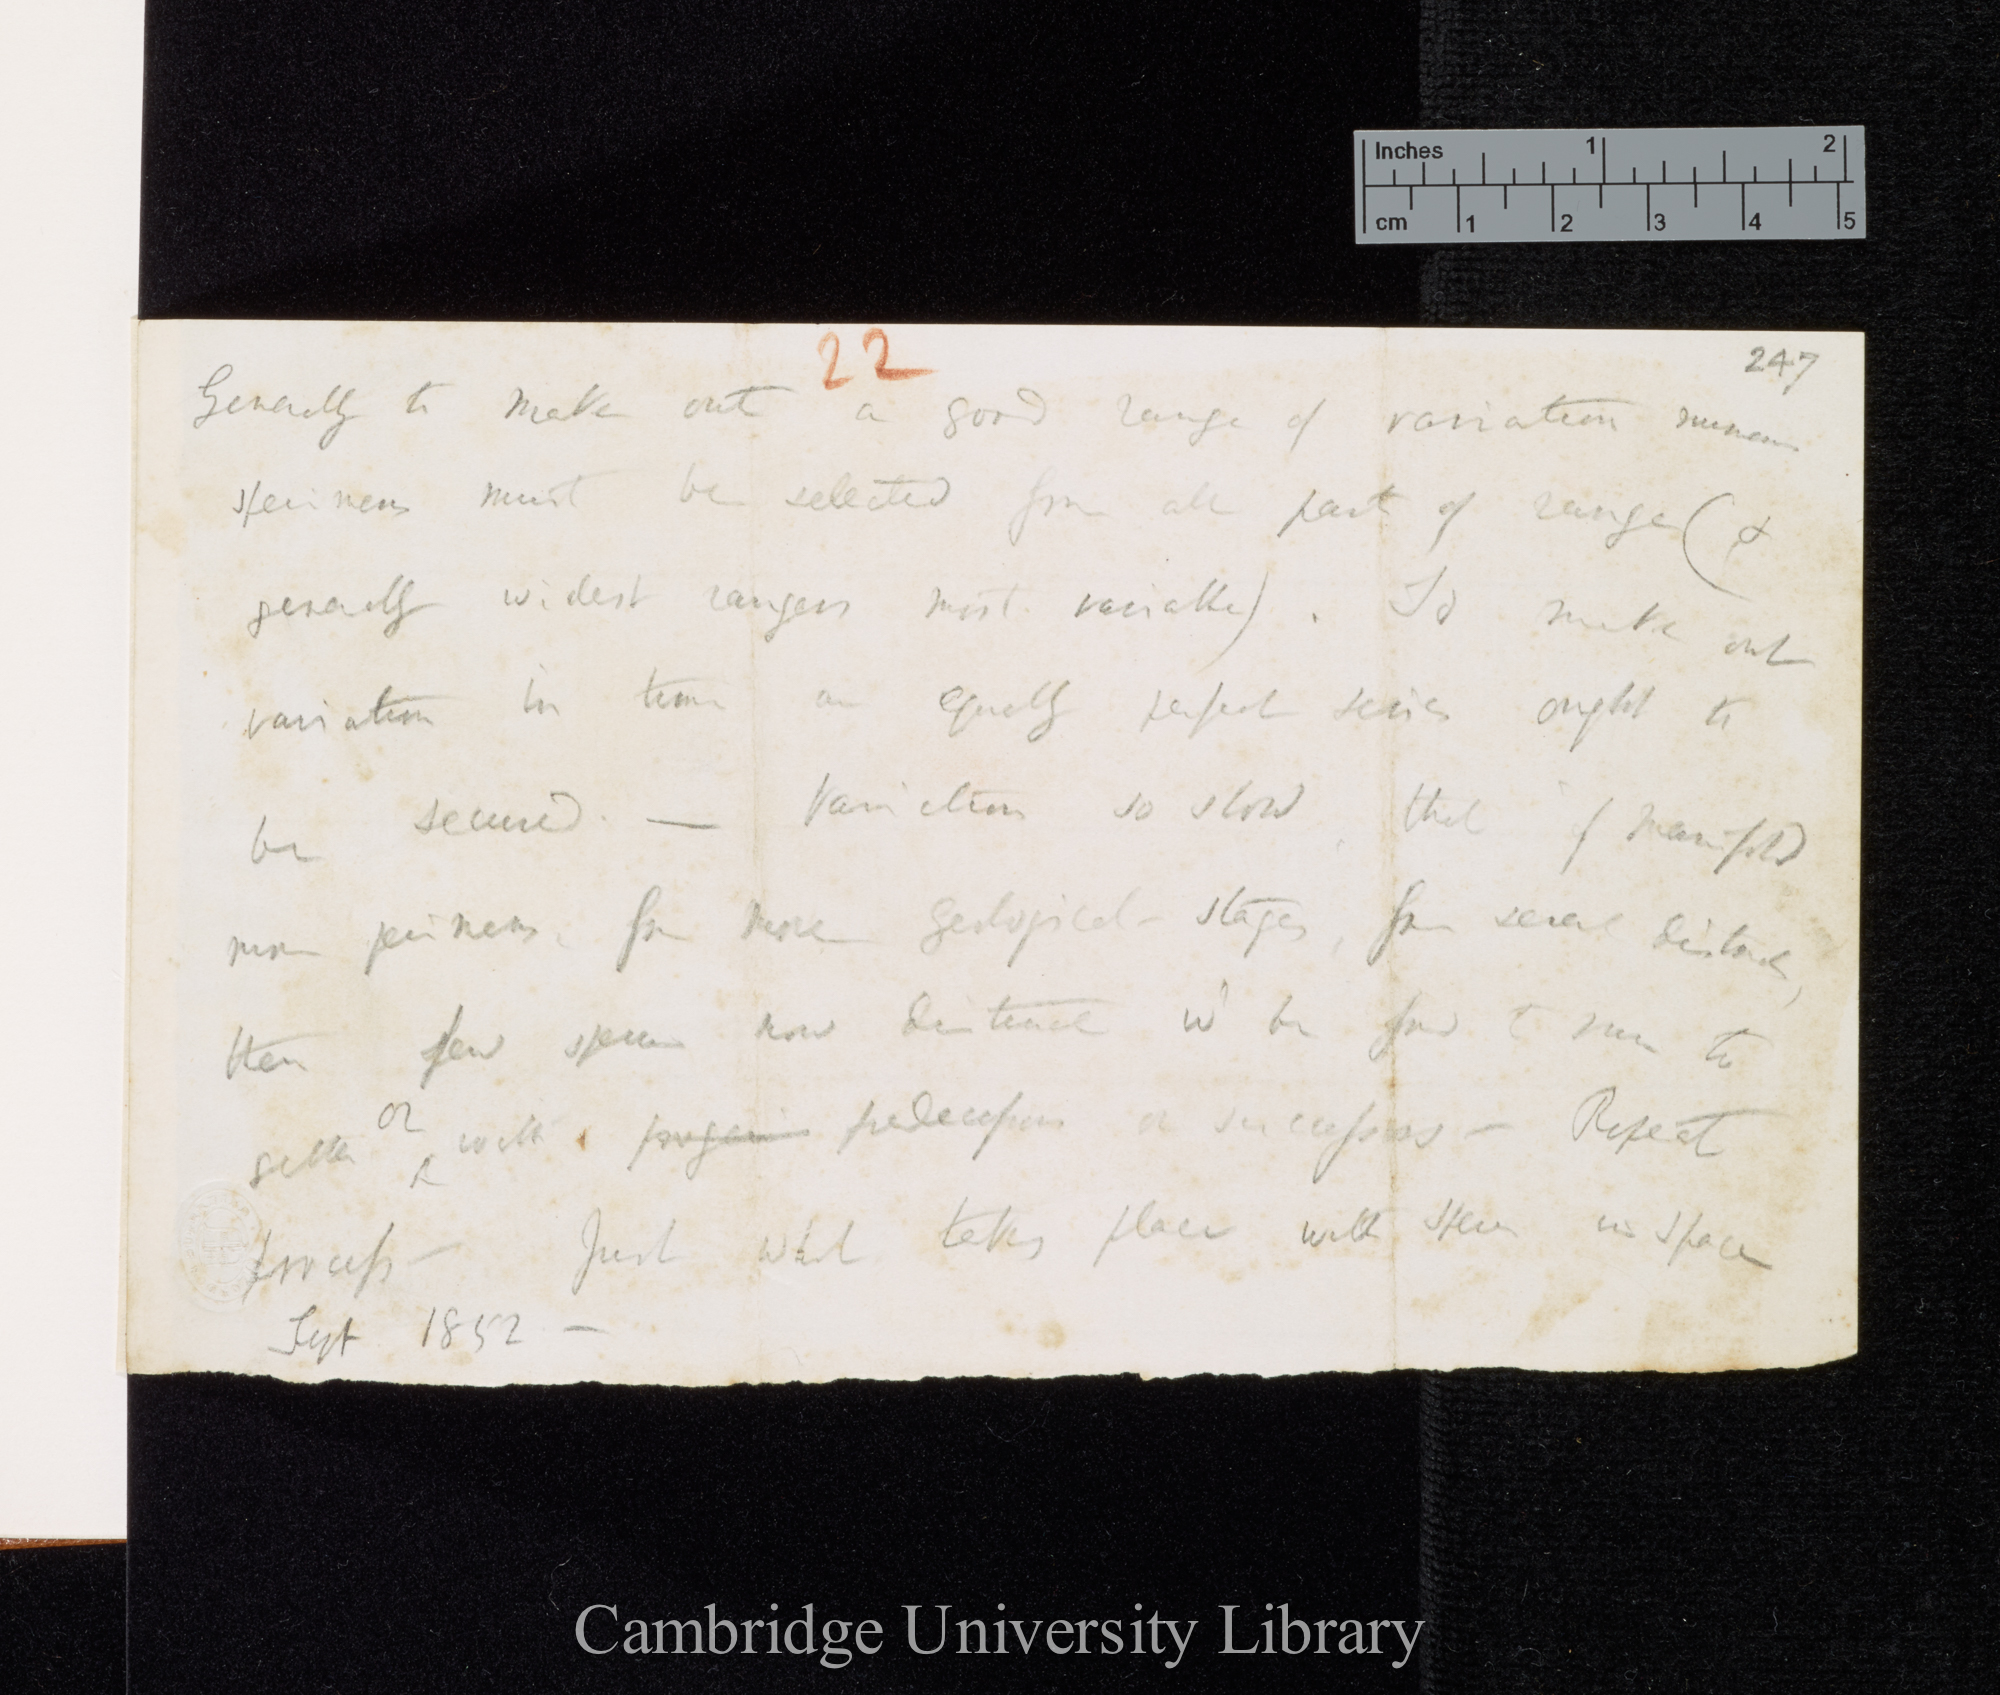 Inches 1 2
cm 1 2 3 4 5
22
247
Generally to make out a good range of variation numerous
specimens must be selected from all part of range (&
generally widest rangers most variable). To make out
variation in time an equally perfect series ought to
be secured. — Variation so slow, that if manifold
more specimens, from more geological stages, from several districts,
then few species now distinct wd be found to run to
gether or with progenis predecessors or successors — Repeat
process — Just what takes place with species in space
Sept 1852 —
Cambridge University Library